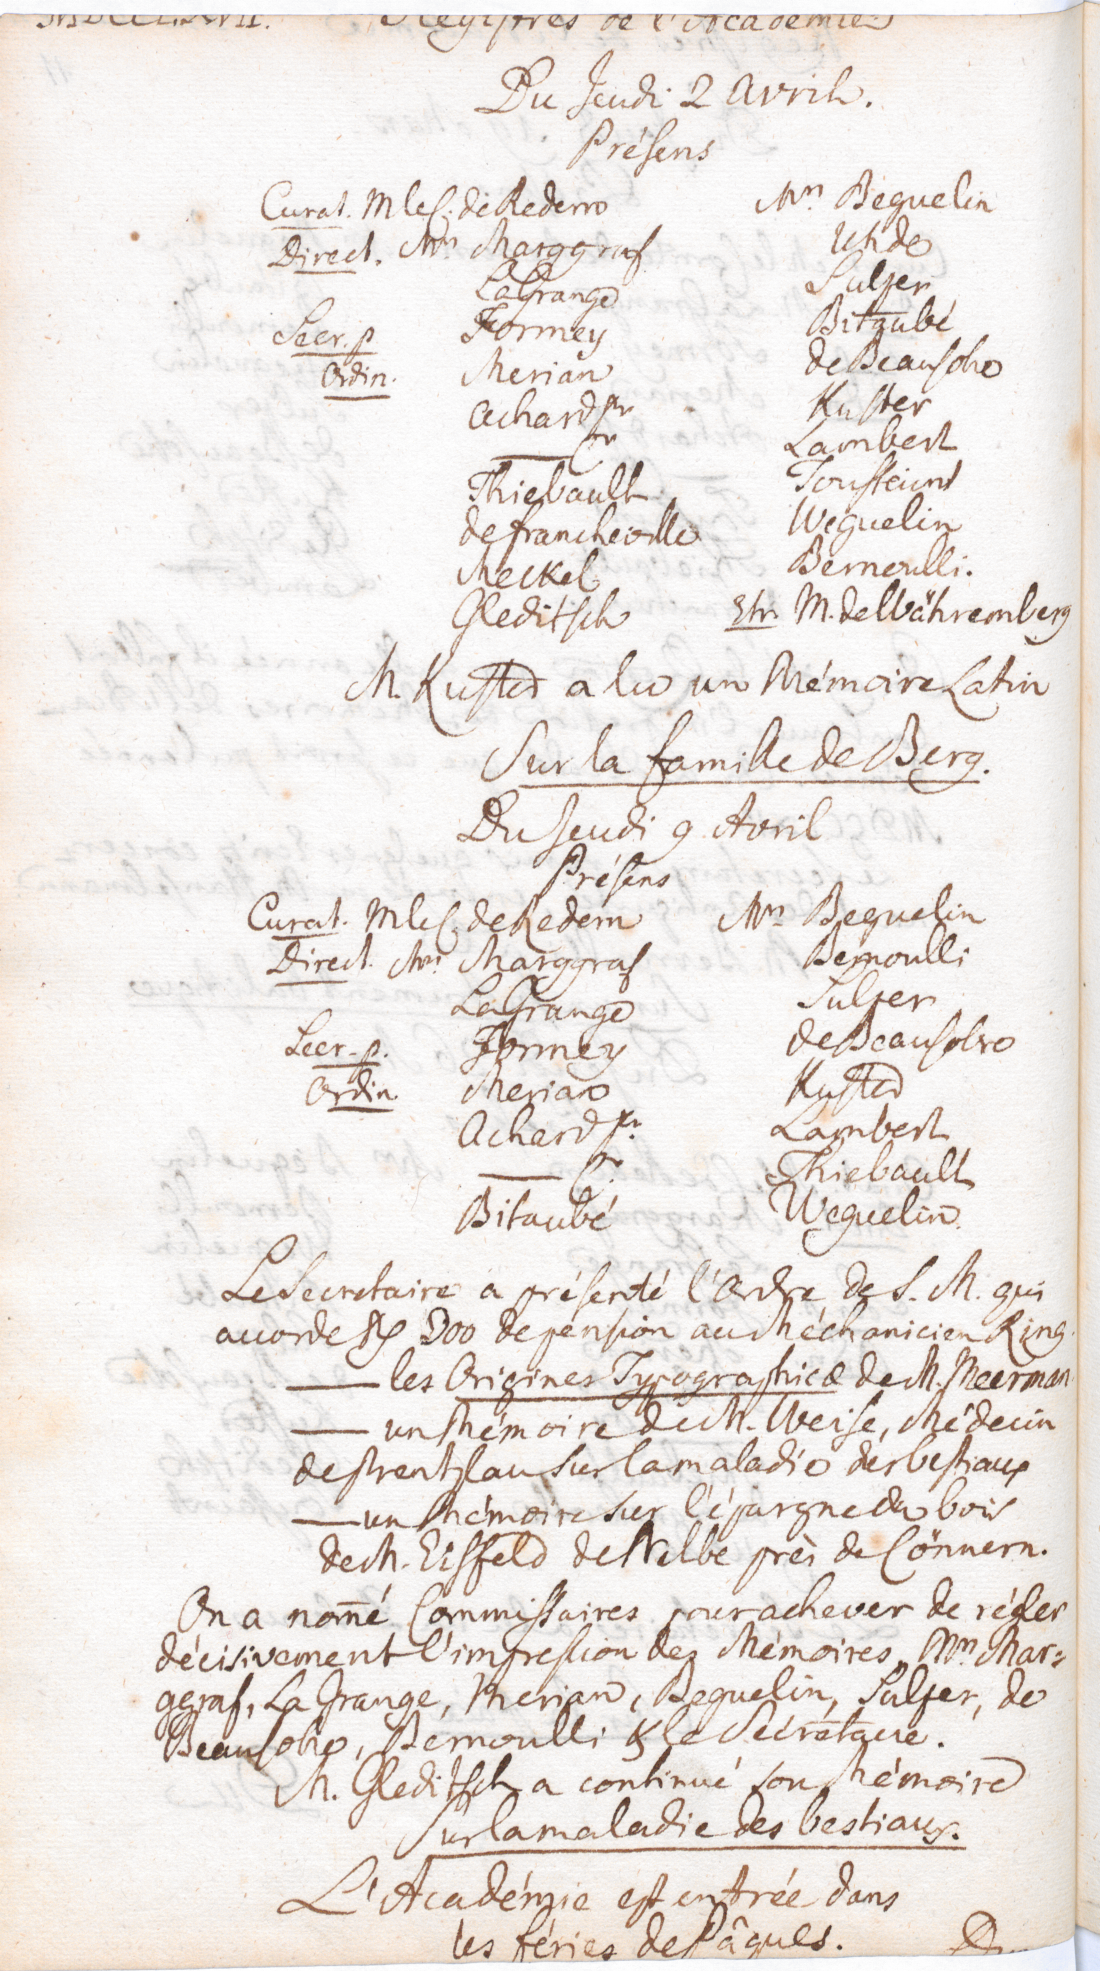 MDCCLXVII. Registres de l'Académie
Du Jeudi 2 Avril.
Présens
Curat. M le C. de Redern Mrs Beguelin
Direct. Mrs Marggraf Uhde
La Grange Sulzer
Secr. p Formey Bitaubé
Ordin. Merian de Beausobre
Achard pr Kuster
—— Lambert
Thiebault Toussaint
de francheville Weguelin
Meckel Bernoulli.
Gleditsch Etr. M. de Währemberg
M. Kuster a lu un Mémoire Latin
Sur la famille de Berg.
Du Jeudi 9 Avril
Présens
Curat. M le C. de Redern Mrs Beguelin
Direct. Mrs Marggraf Bernoulli
La Grange Sulzer
Secr. p. Formey de Beausobre
Ordin. Merian Kuster
Achard pr. Lambert
—— Thiebault
Bitaubé Weguelin.
Le Secretaire a présenté l'Ordre de S. M. qui
accorde 300 de pension au Méchanicien Ring.
—— les Origines Typographicæ de M. Meerman.
—— un Mémoire de M. Weise, Médecin
de Prentzlau sur la maladie des bestiaux
—— un Mémoire sur l'épargne du bois
de M. Eisfeld de près de Cönnern.
On a nom̄é Commissaires pour achever de régler
décisivement l'impression des Mémoires, Mrs Mar=
ggraf, La Grange, Merian, Beguelin, Sulzer, de
Beausobre, Bernoulli & le Sécrétaire.
M. Gleditsch a continué son Mémoire
sur la maladie des bestiaux.
L'Académie est entrée dans
les féries de Pâques.
Du